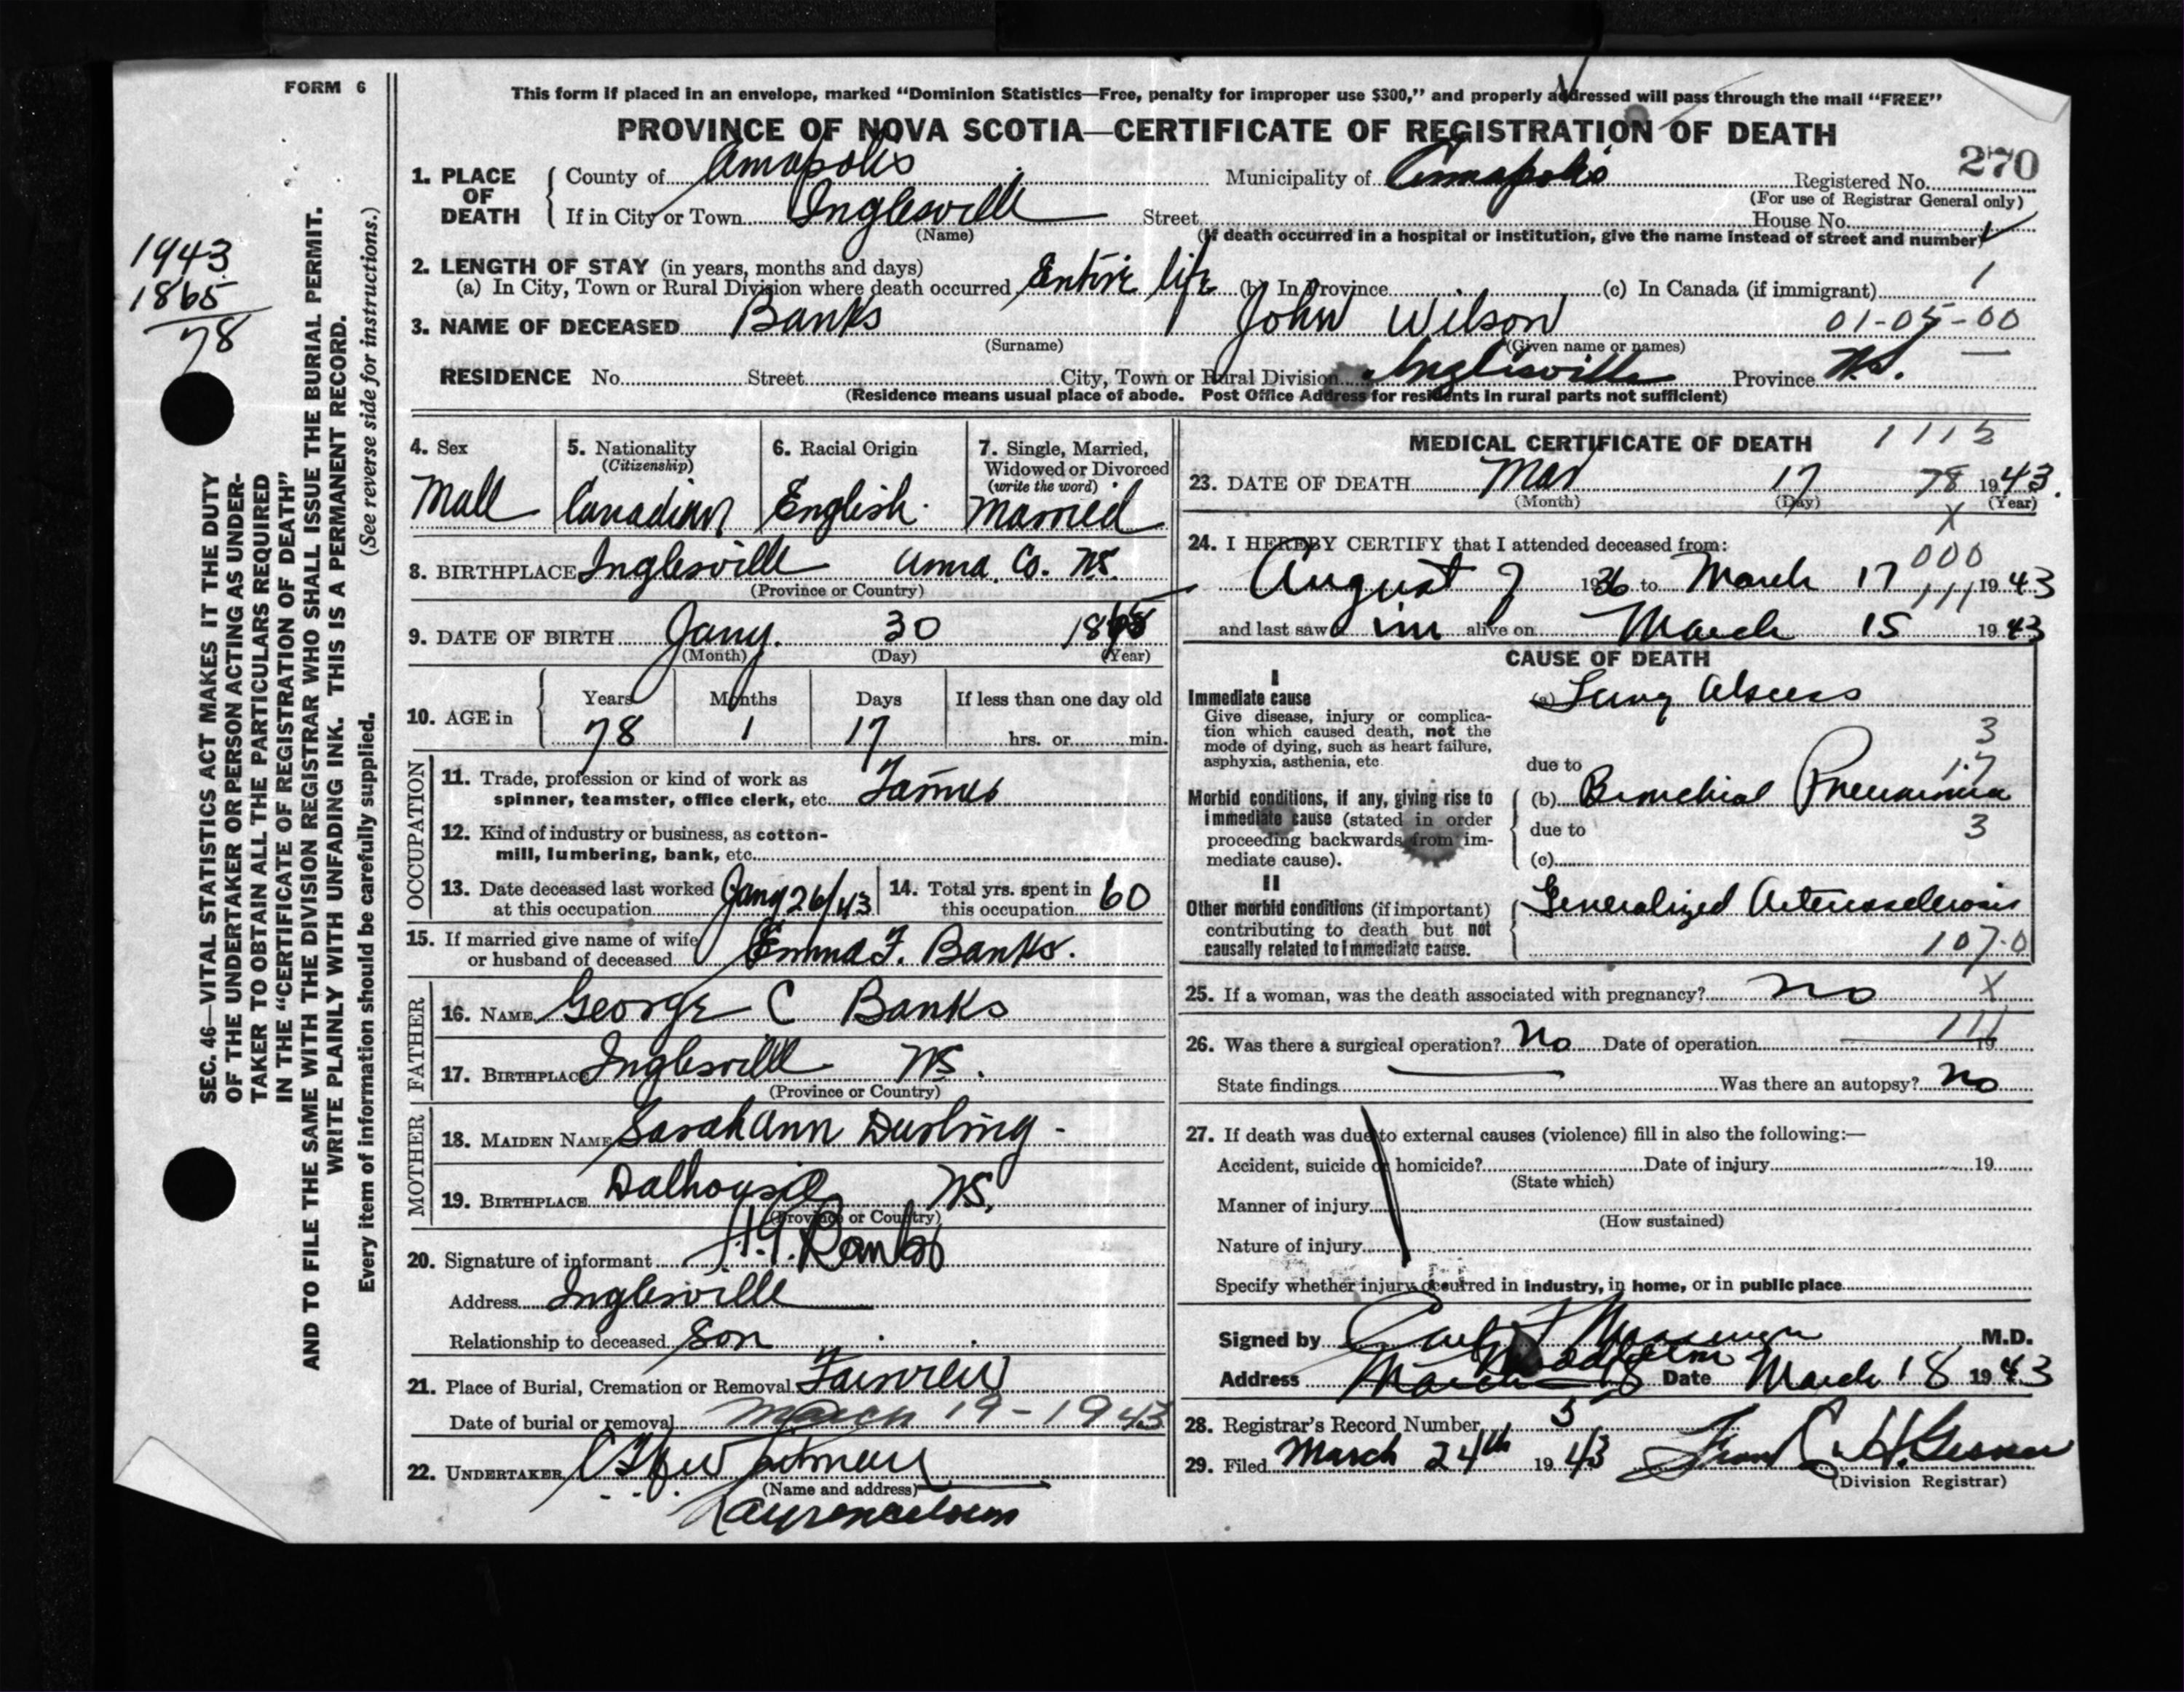 FORM 6
This form if placed in an envelope, marked “Dominion Statistics—Free, penalty for improper use $300,” and properly addressed will pass through the mail “FREE”
PROVINCE OF NOVA SCOTIA—CERTIFICATE OF REGISTRATION OF DEATH
270
1. PLACE OF DEATH County of Annapolis Municipality of Annapolis Registered No.
(For use of Registrar General only)
If in City or Town Inglesville Street House No.
(Name) (If death occurred in a hospital or institution, give the name instead of street and number)
1943
1865
78
2. LENGTH OF STAY (in years, months and days)
(a) In City, Town or Rural Division where death occurred Entire life (b) In Province (c) In Canada (if immigrant) 1
3. NAME OF DECEASED Banks John Wilson 01-05-00
(Surname) (Given name or names)
RESIDENCE No. Street City, Town or Rural Division Inglisville Province N.S.
(Residence means usual place of abode. Post Office Address for residents in rural parts not sufficient)
SEC. 46—VITAL STATISTICS ACT MAKES IT THE DUTY
OF THE UNDERTAKER OR PERSON ACTING AS UNDER-
TAKER TO OBTAIN ALL THE PARTICULARS REQUIRED
IN THE “CERTIFICATE OF REGISTRATION OF DEATH”
AND TO FILE THE SAME WITH THE DIVISION REGISTRAR WHO SHALL ISSUE THE BURIAL PERMIT.
WRITE PLAINLY WITH UNFADING INK. THIS IS A PERMANENT RECORD.
Every item of information should be carefully supplied. (See reverse side for instructions.)
4. Sex 5. Nationality 6. Racial Origin 7. Single, Married,
(Citizenship) Widowed or Divorced
(write the word)
Mall Canadian English. Married
8. BIRTHPLACE Inglesville Anna. Co. N.S.
(Province or Country)
9. DATE OF BIRTH Jany. 30 1865
(Month) (Day) (Year)
10. AGE in Years Months Days If less than one day old
78 1 17 hrs. or min.
OCCUPATION
11. Trade, profession or kind of work as
spinner, teamster, office clerk, etc. Farmer
12. Kind of industry or business, as cotton-
mill, lumbering, bank, etc.
13. Date deceased last worked at this occupation Jany 26/43 14. Total yrs. spent in this occupation 60
15. If married give name of wife
or husband of deceased Emma F. Banks.
FATHER
16. NAME George C Banks
17. BIRTHPLACE Inglesville N.S.
(Province or Country)
MOTHER
18. MAIDEN NAME Sarah Ann Durling -
19. BIRTHPLACE Dalhousie N.S.
(Province or Country)
20. Signature of informant Banks
Address Inglesville
Relationship to deceased Son
21. Place of Burial, Cremation or Removal Fairview
Date of burial or removal March 19-1943
22. UNDERTAKER
(Name and address)
Lawrencetown
MEDICAL CERTIFICATE OF DEATH 1112
23. DATE OF DEATH Mar 17 78 1943.
(Month) (Day) (Year)
X
24. I HEREBY CERTIFY that I attended deceased from:
000
August 7 1936 to March 17 1943
111
and last saw him alive on March 15 1943
CAUSE OF DEATH
I
Immediate cause (a) Lung Abscess
Give disease, injury or complica-
tion which caused death, not the
mode of dying, such as heart failure,
asphyxia, asthenia, etc.
3
due to 1.7
Morbid conditions, if any, giving rise to (b) Bronchial Pneumonia
immediate cause (stated in order due to 3
proceeding backwards from im-
mediate cause). (c)
II
Other morbid conditions (if important) Generalized Arteriosclerosis
contributing to death but not
causally related to immediate cause. 107.0
25. If a woman, was the death associated with pregnancy? no X
111
26. Was there a surgical operation? No Date of operation 19
State findings Was there an autopsy? no
27. If death was due to external causes (violence) fill in also the following:—
Accident, suicide or homicide? Date of injury 19
(State which)
Manner of injury
(How sustained)
Nature of injury
Specify whether injury occurred in industry, in home, or in public place
Signed by M.D.
Address Date March 18 1943
28. Registrar's Record Number 5
29. Filed March 24th 1943
(Division Registrar)